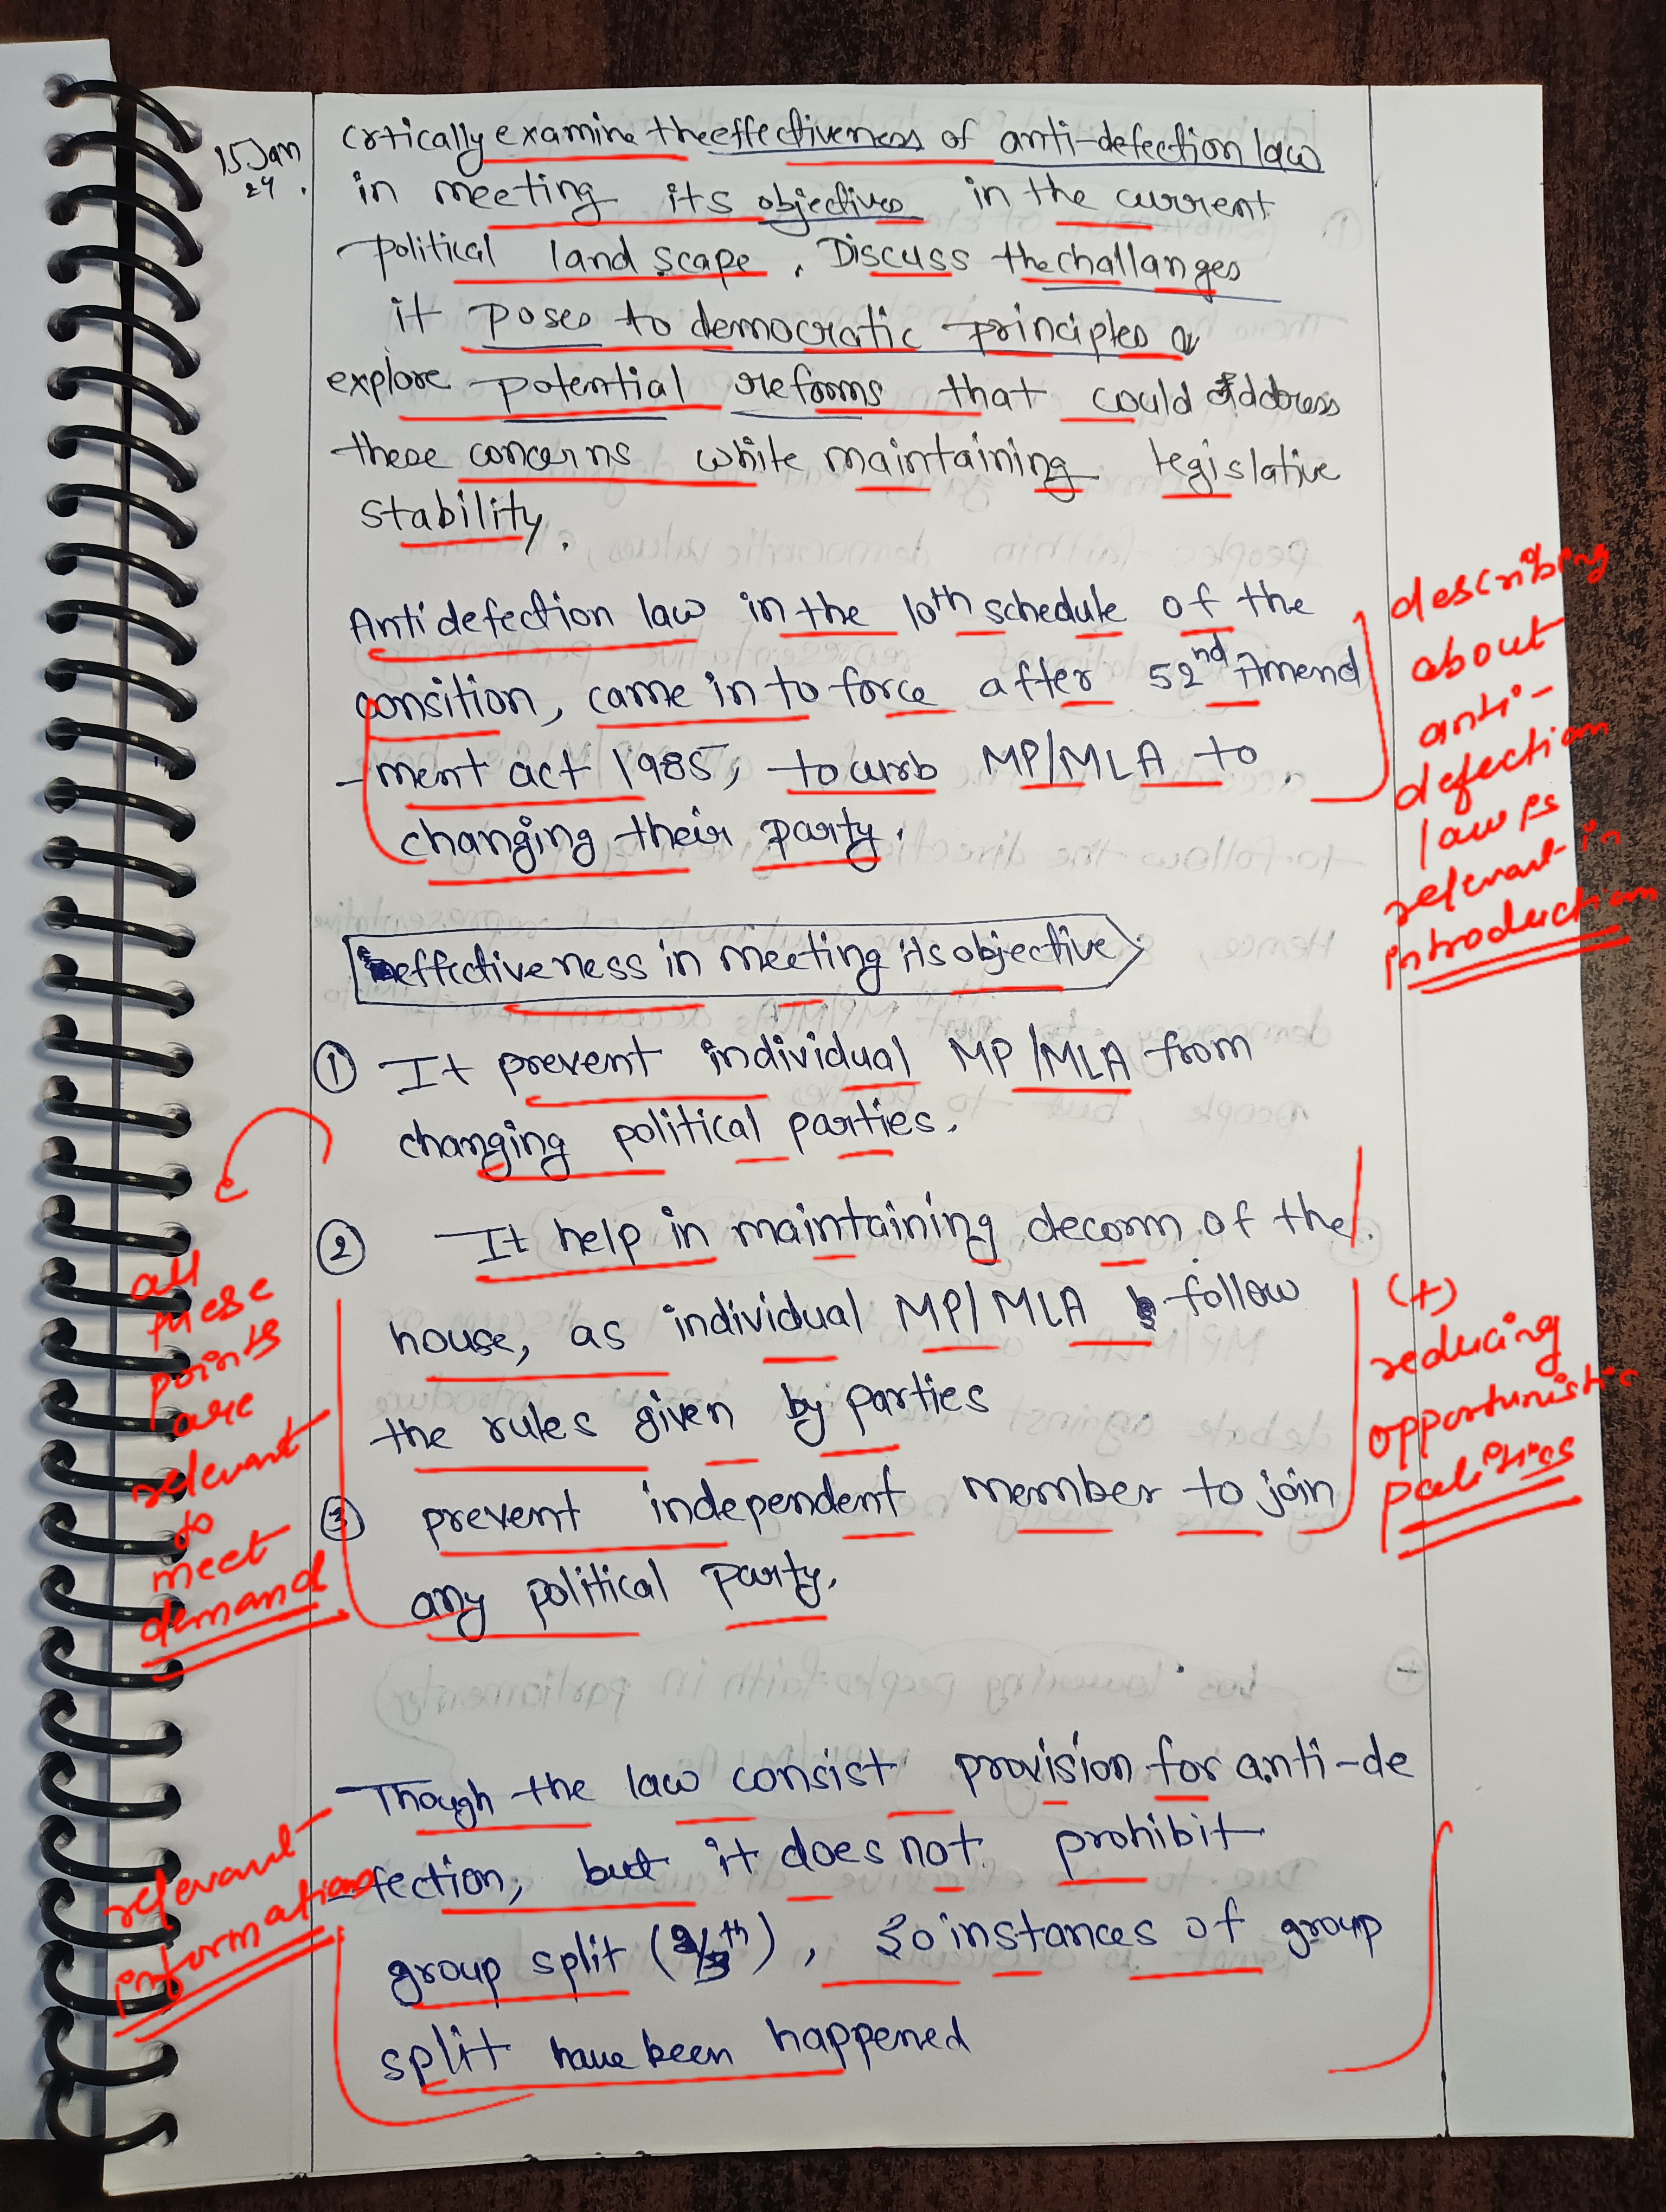 15 Jan
24.
Crtically examine the effectiveness of anti-defection law
in meeting its objectives in the current
political land scape. Discuss the challanges
it poses to democratic principles &
explore potential reforms that could address
these concerns while maintaining legislative
stability.
Antidefection law in the 10th schedule of the
consition, came in to force after 52nd Amend
-ment act 1985, to curb MP/MLA to
changing their party.
describing
about
anti-
defection
law is
relevant in
introduction
effectiveness in meeting its objective
① It prevent individual MP/MLA from
changing political parties.
② It help in maintaining decorm of the
house, as individual MP/MLA follow
the rules given by parties
③ prevent independent member to join
any political party.
all
these
points
are
relevant
to
meet
demand
(+)
reducing
opportunistic
politics
Though the law consist provision for anti-de
-fection, but it does not prohibit
group split (2/3th), so instances of group
split have been happened
relevant
information